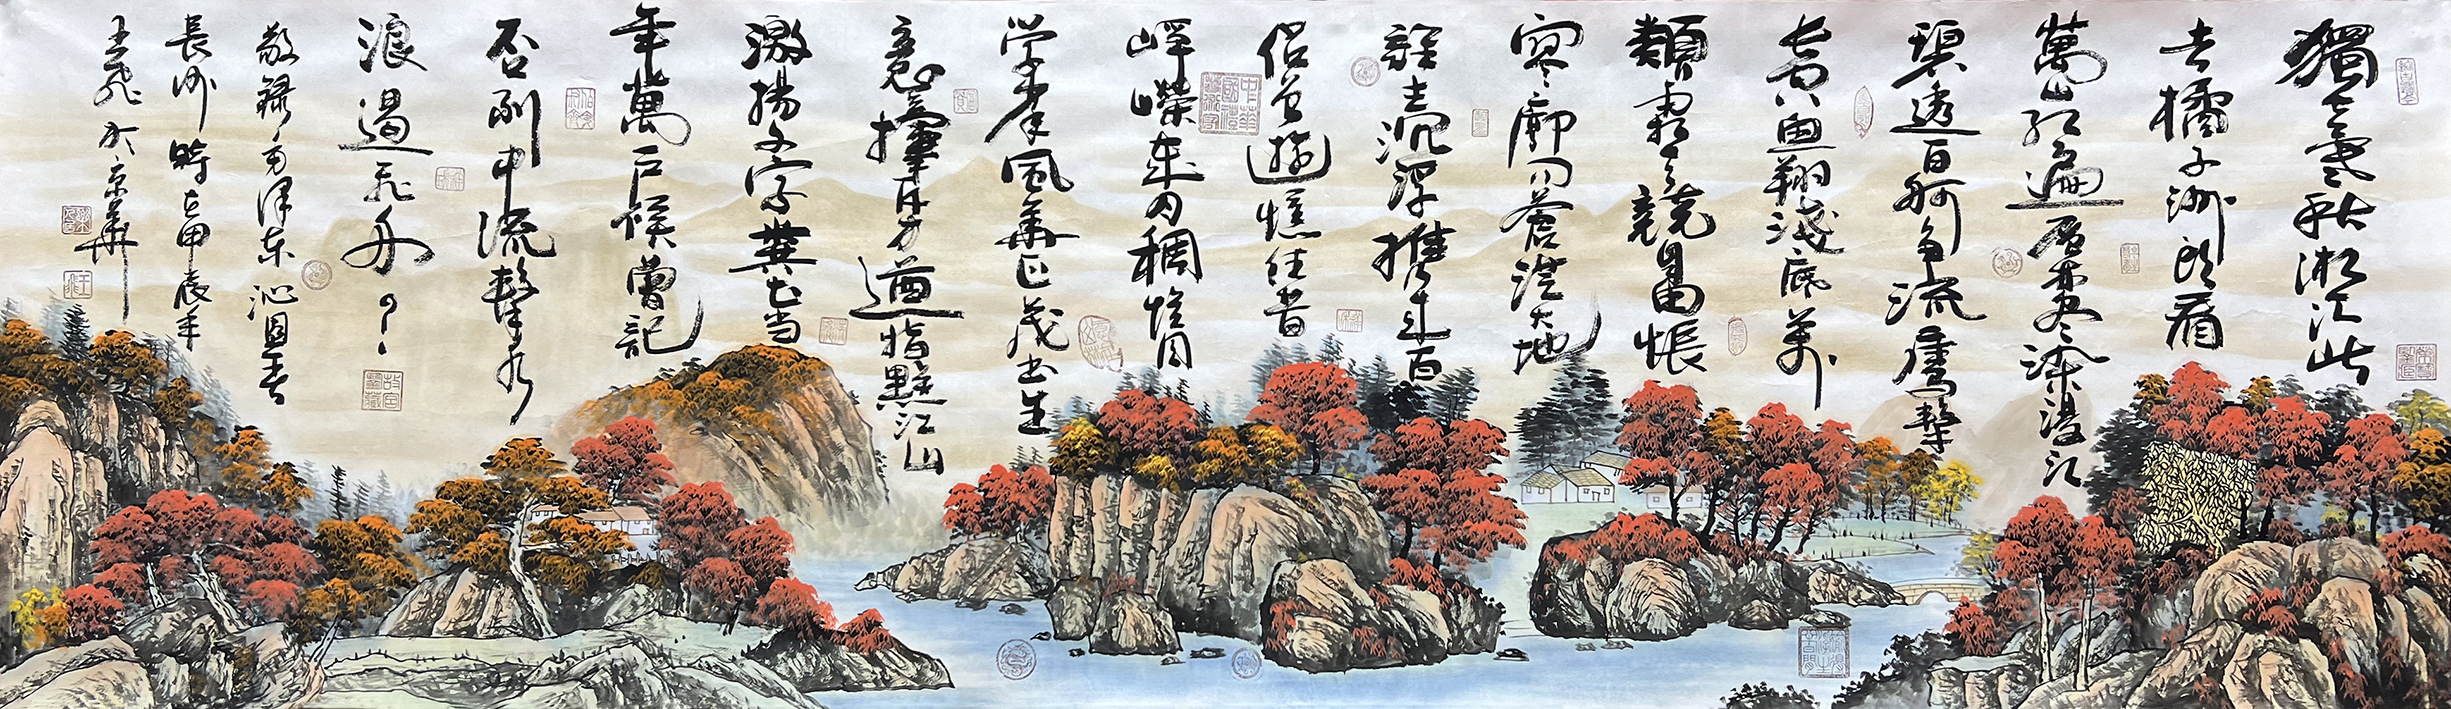 獨立寒秋湘江北
去橘子洲頭看
萬山红遍層林盡染漫江
碧透百舸争流鷹擊
長空魚翔淺底萬
類霜天競自由悵
寥廓问蒼茫大地
誰主沉浮攜来百
侣曾遊憶往昔
崢嶸歲月稠恰同
学少年風華正茂書生
意氣揮斥方遒指點江山
激揚文字糞土当
年萬户侯曾記
否到中流擊水
浪遏飛舟
敬録毛澤东沁園春
長沙時在甲辰年
王飛於京華